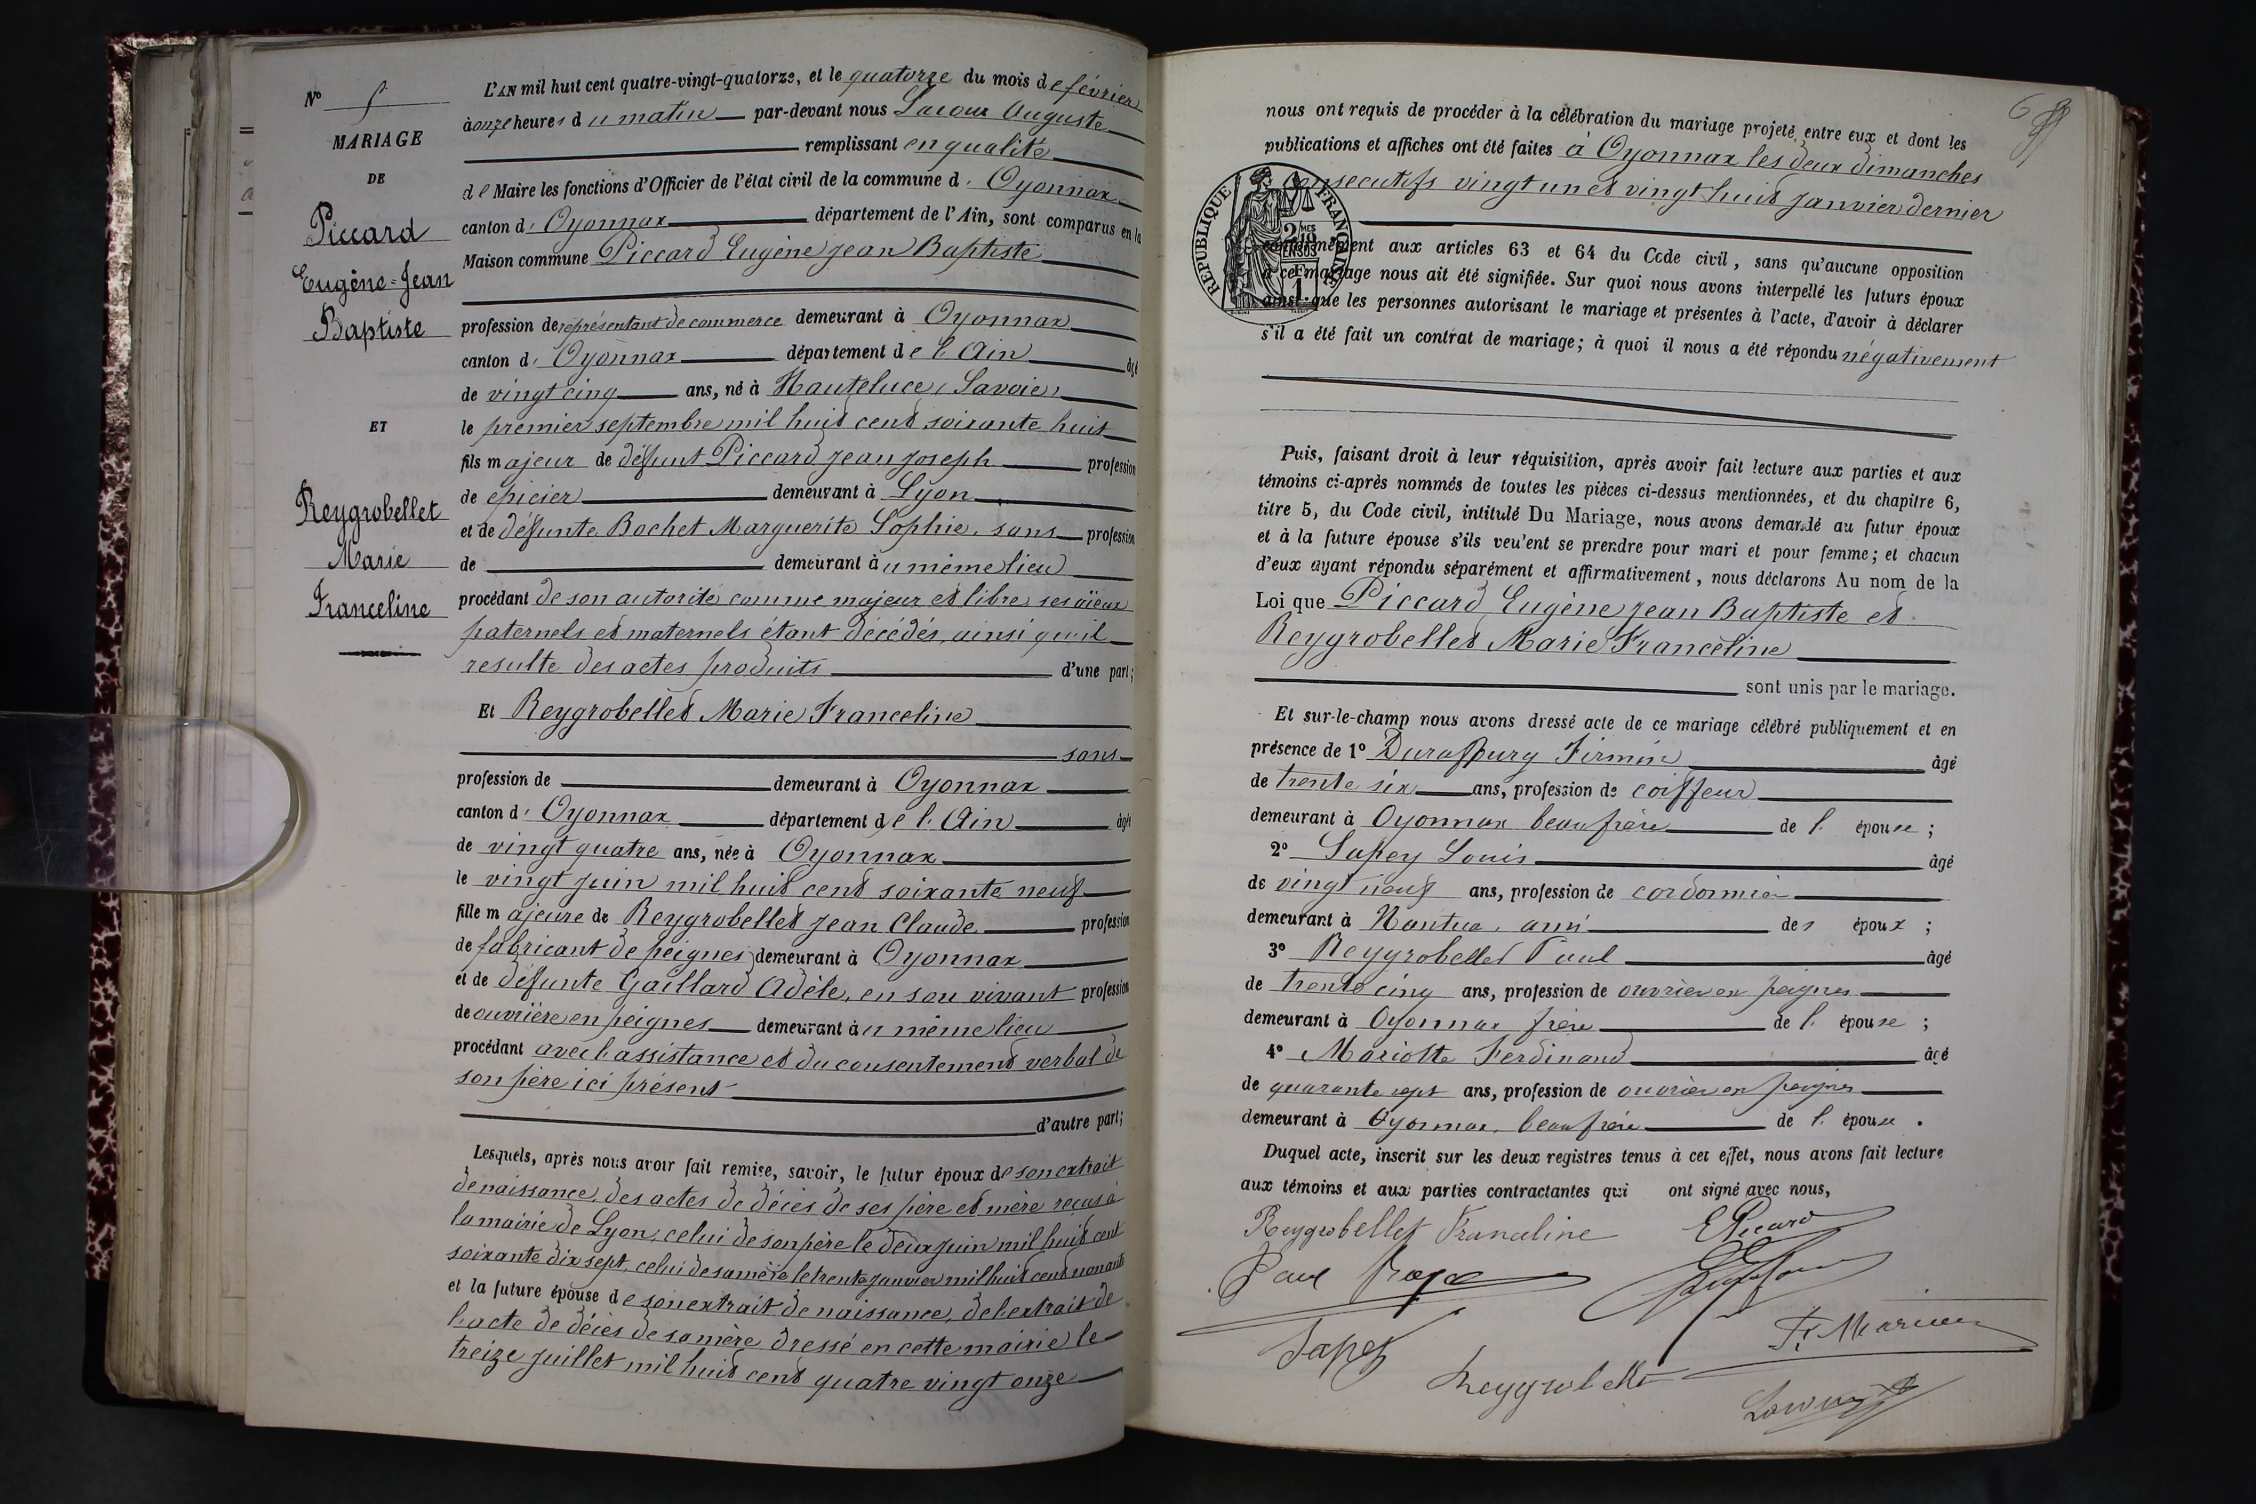 N° 5
MARIAGE
DE
Piccard
Eugène=Jean
Baptiste
ET
Reygrobellet
Marie
Franceline
L'AN mil huit cent quatre-vingt-quatorze, et le quatorze du mois de février
à onze heures du matin par-devant nous Lacour Auguste
remplissant en qualité
de Maire les fonctions d'Officier de l'état civil de la commune d' Oyonnax
canton d' Oyonnax département de l'Ain, sont comparus en la
Maison commune Piccard Eugène Jean Baptiste
profession de représentant de commerce demeurant à Oyonnax
canton d' Oyonnax département de l'Ain âgé
de vingt cinq ans, né à Hauteluce (Savoie)
le premier septembre mil huit cent soixante huit
fils majeur de défunt Piccard Jean Joseph profession
de épicier demeurant à Lyon
et de défunte Bochet Marguerite Sophie, sans profession
de demeurant au même lieu
procédant de son autorité comme majeur et libre, ses aïeux
paternels et maternels étant décédés, ainsi qu'il
resulte des actes produits d'une part;
Et Reygrobellet Marie Franceline
sans
profession de demeurant à Oyonnax
canton d' Oyonnax département de l'Ain âgée
de vingt quatre ans, née à Oyonnax
le vingt juin mil huit cent soixante neuf
fille majeure de Reygrobellet Jean Claude profession
de fabricant de peignes demeurant à Oyonnax
et de défunte Gaillard Adèle, en son vivant profession
de ouvrière en peignes demeurant au même lieu
procédant avec l'assistance et du consentement verbal de
son père ici présent
d'autre part;
Lesquels, après nous avoir fait remise, savoir, le futur époux de son extrait
de naissance, des actes de décès de ses père et mère reçus à
la mairie de Lyon, celui de son père le deux juin mil huit cent
soixante dix sept, celui de sa mère le trente janvier mil huit cent nonante
et la future épouse de son extrait de naissance, de l'extrait de
l'acte de décès de sa mère dressé en cette mairie le
treize juillet mil huit cent quatre vingt onze
6
nous ont requis de procéder à la célébration du mariage projeté entre eux et dont les
publications et affiches ont été faites à Oyonnax les deux dimanches
consecutifs vingt un et vingt huit janvier dernier
RÉPUBLIQUE FRANÇAISE
2 MES 10 EN SUS
1F
conformément aux articles 63 et 64 du Code civil, sans qu'aucune opposition
à ce mariage nous ait été signifiée. Sur quoi nous avons interpellé les futurs époux
ainsi que les personnes autorisant le mariage et présentes à l'acte, d'avoir à déclarer
s'il a été fait un contrat de mariage; à quoi il nous a été répondu négativement
Puis, faisant droit à leur réquisition, après avoir fait lecture aux parties et aux
témoins ci-après nommés de toutes les pièces ci-dessus mentionnées, et du chapitre 6,
titre 5, du Code civil, intitulé Du Mariage, nous avons demandé au futur époux
et à la future épouse s'ils veulent se prendre pour mari et pour femme; et chacun
d'eux ayant répondu séparément et affirmativement, nous déclarons Au nom de la
Loi que Piccard Eugène Jean Baptiste et
Reygrobellet Marie Franceline
sont unis par le mariage.
Et sur-le-champ nous avons dressé acte de ce mariage célébré publiquement et en
présence de 1° Duraffourg Firmin âgé
de trente six ans, profession de coiffeur
demeurant à Oyonnax beau frère de l' épouse;
2° Sapey Louis âgé
de vingt neuf ans, profession de cordonnier
demeurant à Nantua, ami des époux;
3° Reygrobellet Paul âgé
de trente cinq ans, profession de ouvrier en peignes
demeurant à Oyonnax frère de l' épouse;
4° Mariotte Ferdinand âgé
de quarante sept ans, profession de ouvrier en peignes
demeurant à Oyonnax, beau frère de l' épouse.
Duquel acte, inscrit sur les deux registres tenus à cet effet, nous avons fait lecture
aux témoins et aux parties contractantes qui ont signé avec nous,
Reygrobellet Franceline E Piccard
Paul
Sapey
Reygrobellet
Lacour